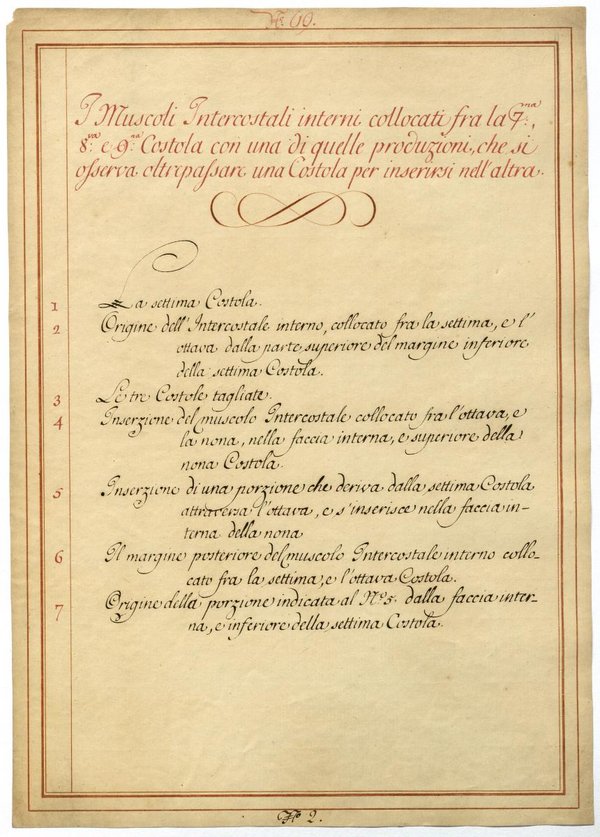 N.º 69.
I Muscoli Intercostali interni collocati fra la 7.ma,
8.va e 9.na Costola con una di quelle produzioni, che si
osserva oltrepassare una Costola per inserirsi nell'altra.
1 La settima Costola.
2 Origine dell'Intercostale interno, collocato fra la settima, e l'
ottava dalla parte superiore del margine inferiore
della settima Costola.
3 Le tre Costole tagliate.
4 Inserzione del muscolo Intercostale collocato fra l'ottava, e
la nona, nella faccia interna, e superiore della
nona Costola.
5 Inserzione di una porzione che deriva dalla settima Costola
attraversa l'ottava, e s'inserisce nella faccia in-
terna della nona
6 Il margine posteriore del muscolo Intercostale interno collo-
cato fra la settima, e l'ottava Costola.
7 Origine della porzione indicata al N.º 5. dalla faccia inter-
na, e inferiore della settima Costola.
N.º 2.